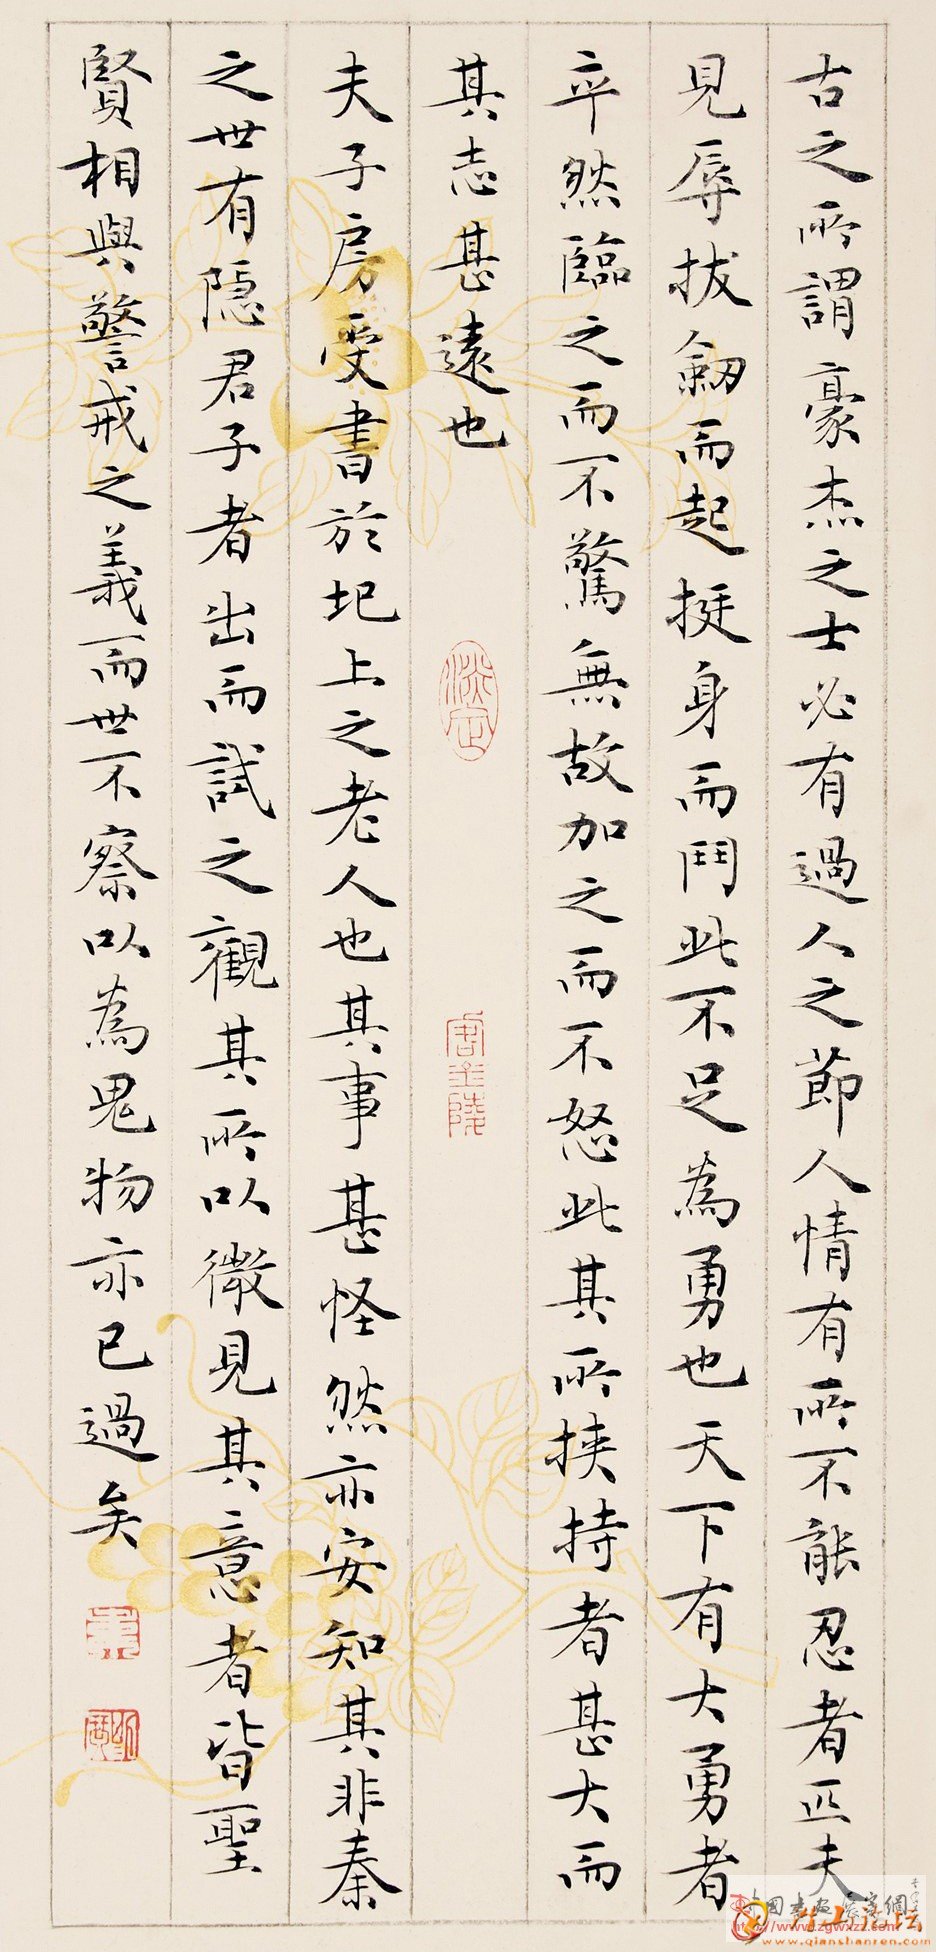 古之所謂豪杰之士必有過人之節人情有所不能忍者匹夫
見辱拔劒而起挺身而鬥此不足為勇也天下有大勇者
卒然臨之而不驚無故加之而不怒此其所挾持者甚大而
其志甚遠也
夫子房受書於圯上之老人也其事甚怪然亦安知其非秦
之世有隱君子者出而試之觀其所以微見其意者皆聖
賢相與警戒之義而世不察以為鬼物亦已過矣
www.qianshanren.com